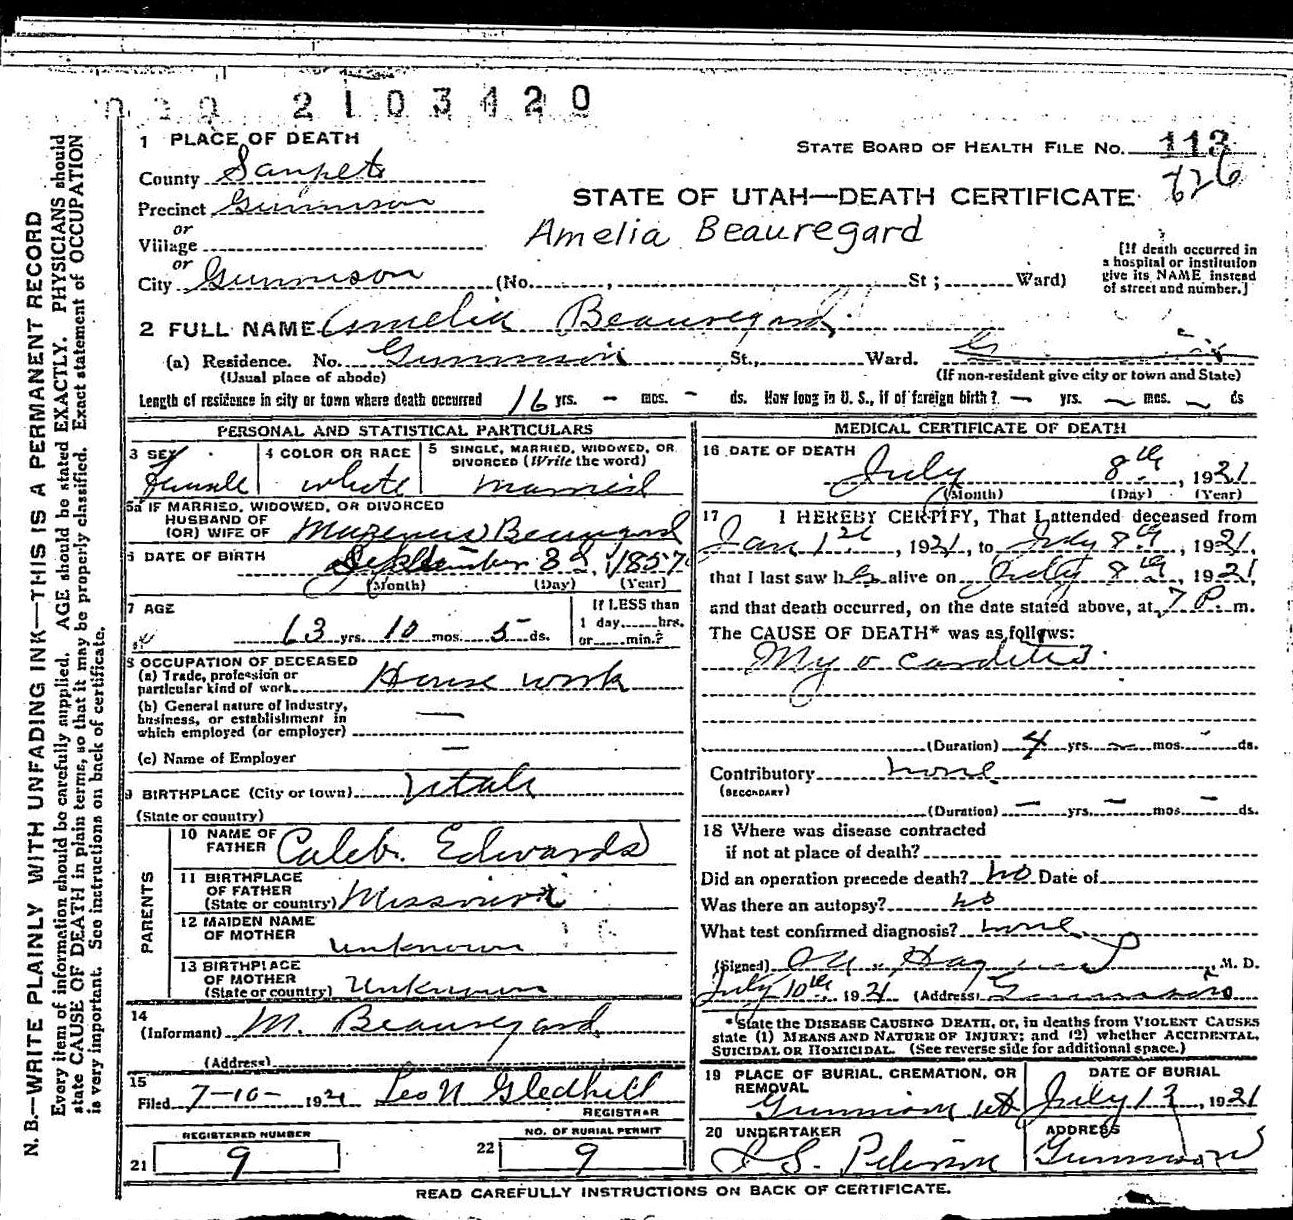 2103420
1 PLACE OF DEATH
STATE BOARD OF HEALTH FILE NO. 113
626
County Sanpete
STATE OF UTAH—DEATH CERTIFICATE
Precinct Gunnison
or
Village
Amelia Beauregard
[If death occurred in a hospital or institution give its NAME instead of street and number.]
or
City Gunnison (No. , St ; Ward)
2 FULL NAME Amelia Beauregard
(a) Residence. No. Gunnison St., Ward.
(Usual place of abode) (If non-resident give city or town and State)
Length of residence in city or town where death occurred 16 yrs. – mos. – ds. How long in U. S., if of foreign birth? – yrs. – mos. – ds
PERSONAL AND STATISTICAL PARTICULARS
3 SEX Female
4 COLOR OR RACE white
5 SINGLE, MARRIED, WIDOWED, OR DIVORCED (Write the word) Married
5a IF MARRIED, WIDOWED, OR DIVORCED
HUSBAND OF
(OR) WIFE OF Beauregard
6 DATE OF BIRTH September 1857
(Month) (Day) (Year)
7 AGE
63 yrs. 10 mos. 5 ds.
If LESS than
1 day hrs.
or min.?
8 OCCUPATION OF DECEASED
(a) Trade, profession or
particular kind of work House work
(b) General nature of industry,
business, or establishment in
which employed (or employer) —
(c) Name of Employer —
9 BIRTHPLACE (City or town) Utah
(State or country)
PARENTS
10 NAME OF FATHER Caleb Edwards
11 BIRTHPLACE OF FATHER (State or country) Missouri
12 MAIDEN NAME OF MOTHER unknown
13 BIRTHPLACE OF MOTHER (State or country) Unknown
14
(Informant) M. Beauregard
(Address)
15
Filed 7-10- 1921 Leo N Gledhill
REGISTRAR
REGISTERED NUMBER
21 9
NO. OF BURIAL PERMIT
22 9
MEDICAL CERTIFICATE OF DEATH
16 DATE OF DEATH
July 8th, 1921
(Month) (Day) (Year)
17 I HEREBY CERTIFY, That I attended deceased from
Jan 1st, 1921, to July 8th, 1921,
that I last saw her alive on July 8th, 1921,
and that death occurred, on the date stated above, at 7 P. m.
The CAUSE OF DEATH* was as follows:
Myocarditis
(Duration) 4 yrs. – mos. – ds.
Contributory none
(SECONDARY)
(Duration) – yrs. – mos. – ds.
18 Where was disease contracted
if not at place of death?
Did an operation precede death? no Date of
Was there an autopsy? no
What test confirmed diagnosis? none
(Signed) M. D.
July 10th, 1921 (Address) Gunnison
*State the DISEASE CAUSING DEATH, or, in deaths from VIOLENT CAUSES
state (1) MEANS AND NATURE OF INJURY; and (2) whether ACCIDENTAL,
SUICIDAL OR HOMICIDAL. (See reverse side for additional space.)
19 PLACE OF BURIAL, CREMATION, OR REMOVAL
Gunnison Ut
DATE OF BURIAL
July 12, 1921
20 UNDERTAKER
ADDRESS
Gunnison
READ CAREFULLY INSTRUCTIONS ON BACK OF CERTIFICATE.
N. B.—WRITE PLAINLY WITH UNFADING INK—THIS IS A PERMANENT RECORD
Every item of information should be carefully supplied. AGE should be stated EXACTLY. PHYSICIANS should
state CAUSE OF DEATH in plain terms, so that it may be properly classified. Exact statement of OCCUPATION
is very important. See instructions on back of certificate.